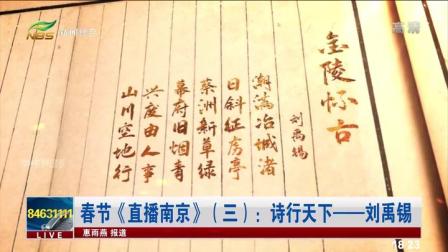 NBS
高清
金陵怀古
刘禹锡
潮满冶城渚
日斜征虏亭
蔡洲新草绿
幕府旧烟青
兴废由人事
山川空地形
84631111
LIVE
春节《直播南京》（三）：诗行天下——刘禹锡
惠雨燕 报道
18:23